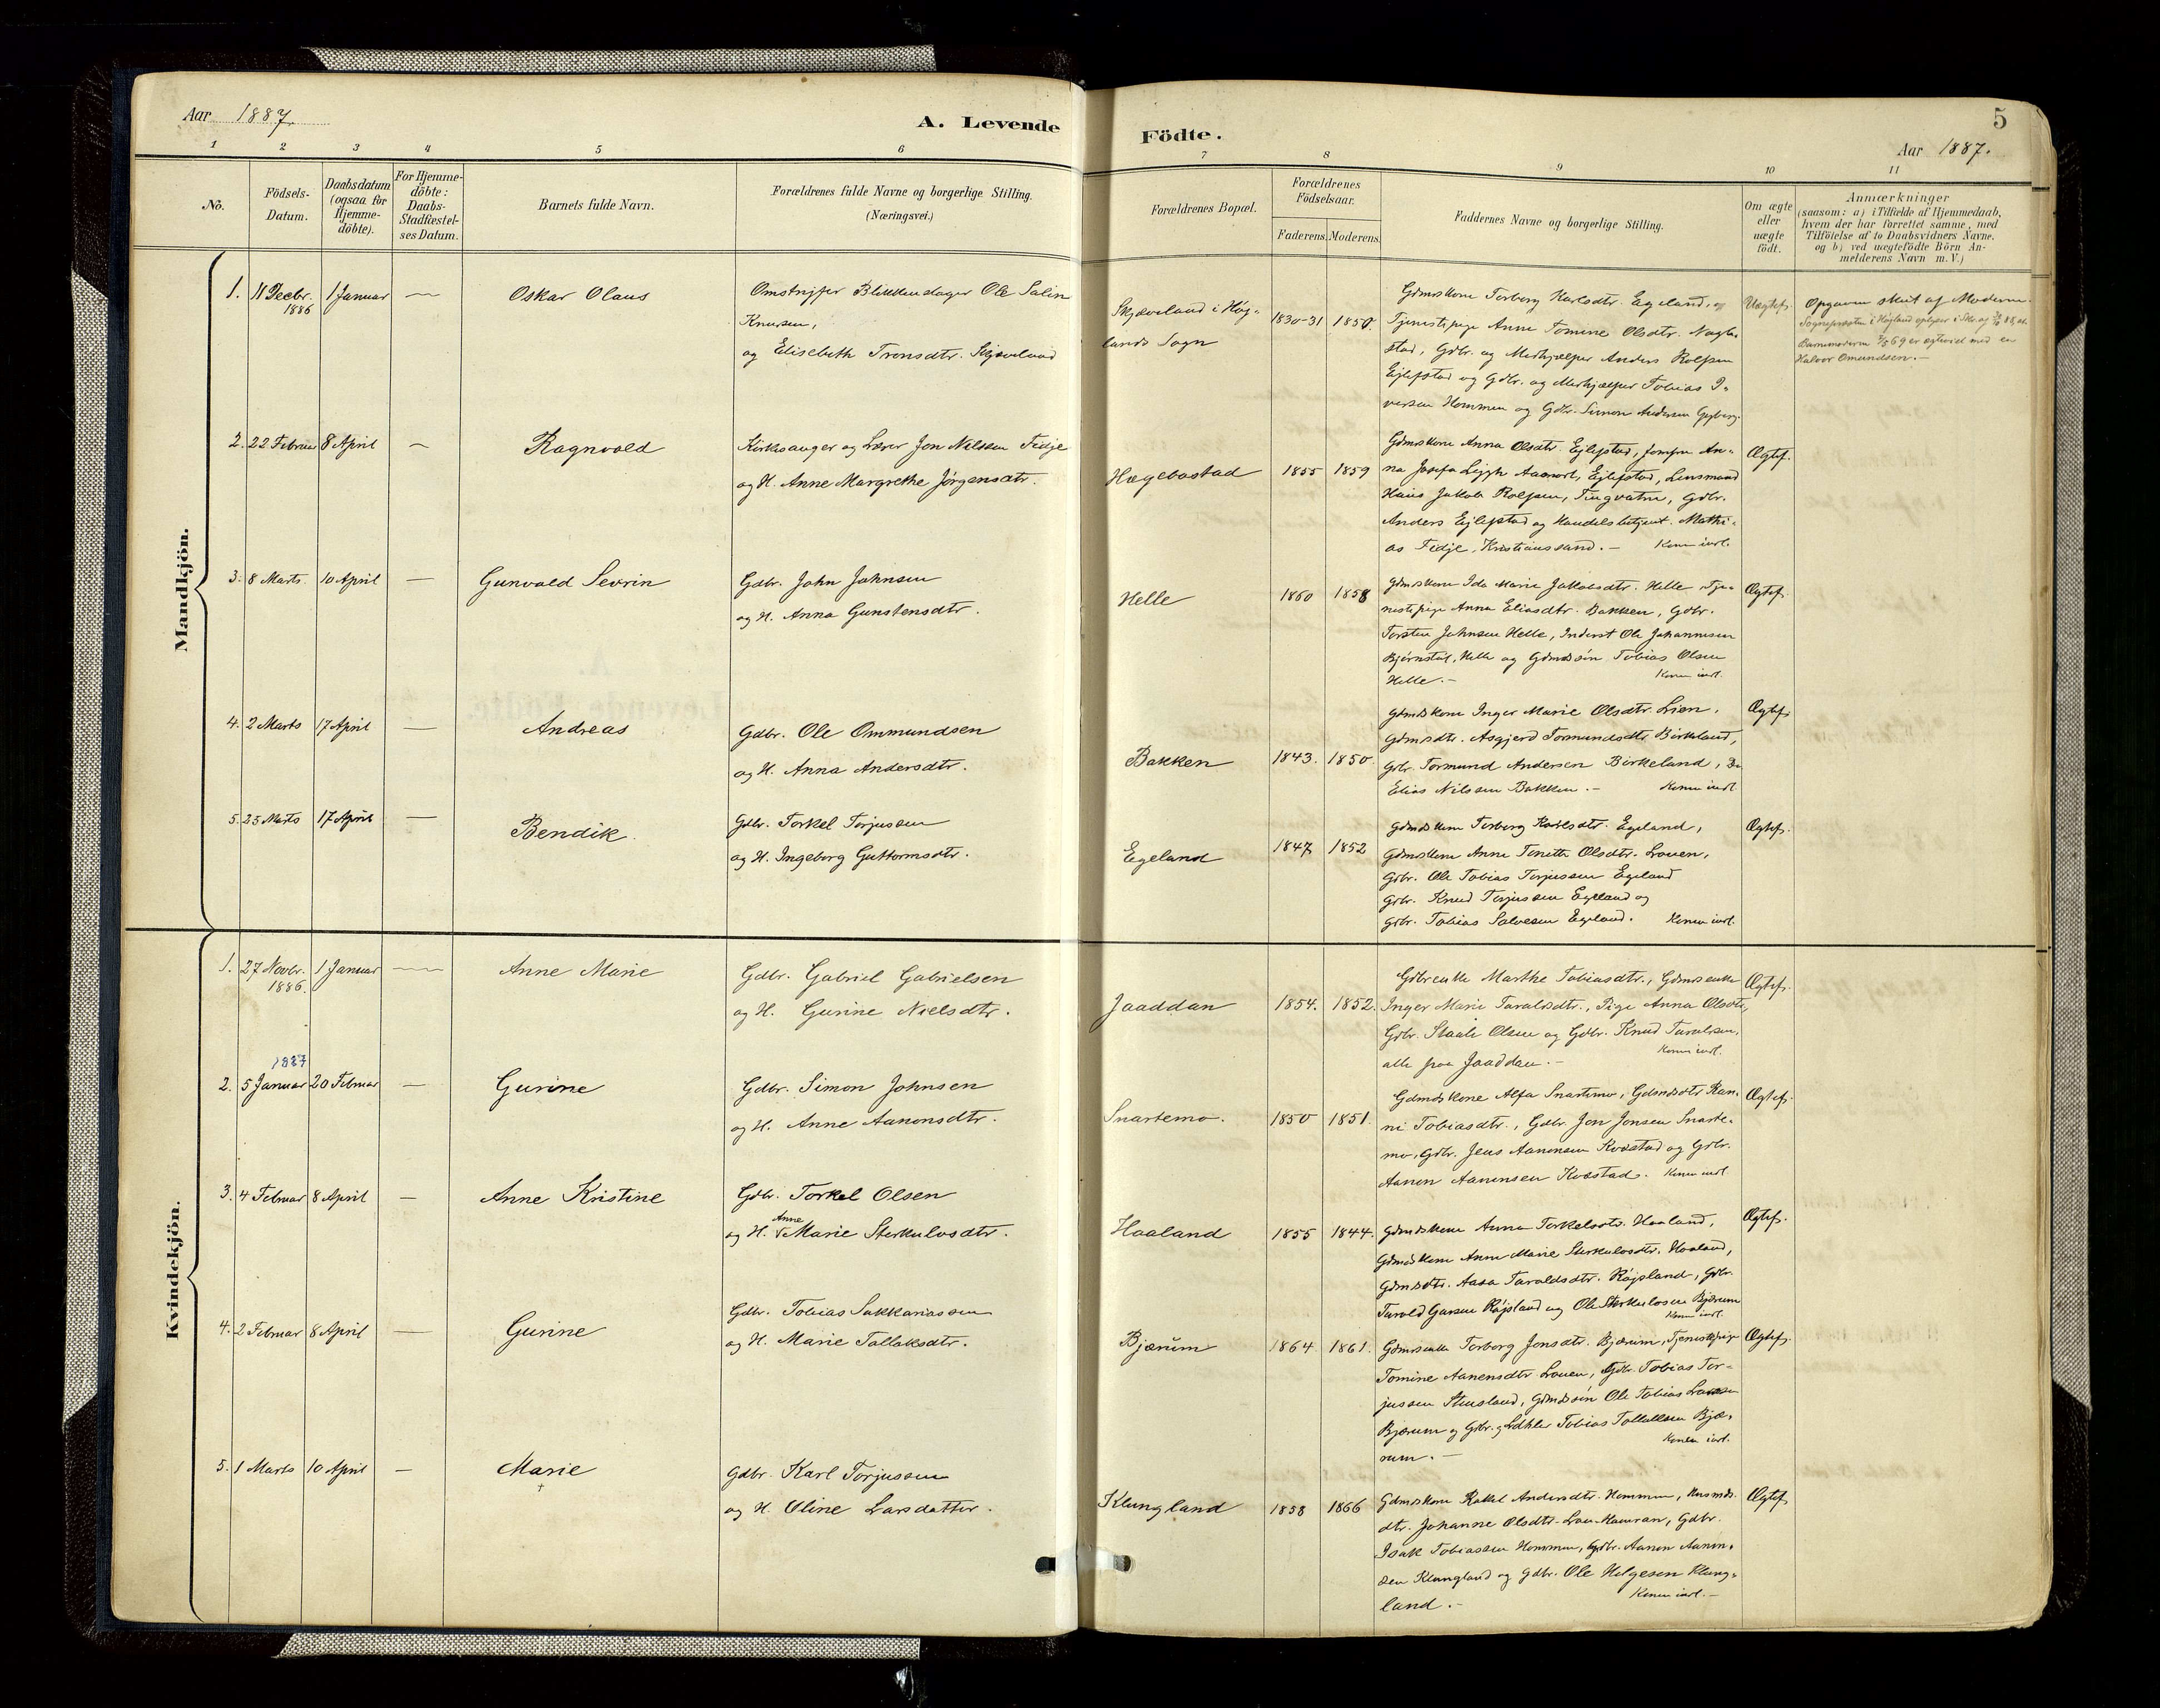 Aar 1887.
A. Levende
Födte.
5
Aar 1887.
1 2 3 4 5 6 7 8 9 10 11
No.
Födsels-
Datum.
Daabsdatum
(ogsaa for
Hjemme-
döbte).
For Hjemme-
döbte:
Daabs-
Stadfæstel-
ses Datum.
Barnets fulde Navn.
Forældrenes fulde Navne og borgerlige Stilling.
(Næringsvei.)
Forældrenes Bopæl.
Forældrenes
Födselsaar.
Faderens. Moderens.
Faddernes Navne og borgerlige Stilling.
Om ægte
eller
uægte
födt.
Anmærkninger
(saasom: a) i Tilfælde af Hjemmedaab,
hvem der har forrettet samme, med
Tilföielse af to Daabsvidners Navne.
og b) ved uægtefödte Börn An-
melderens Navn m. V.)
Mandkjön.
1. 11 Decbr. 1886 1 Januar — Oskar Olaus
Omstripper Blikkenslager Ole Salin
Knursen,
og Elisebeth Tronsdtr. Skjæveland
Skjæveland i Høg-
lands Sogn
1830-31 1850.
Gdmdskone Torborg Karlsdtr. Egeland, og
Tjenestepige Anne Tomine Olsdtr. Nagle-
stad, Gdbr. og Medhjælper Anders Rolfsen
Ejlefstad og Gdbr. og Medhjælper Tobias I-
versen Hommen og Gdbr. Simon Andersen
Uægtef.
Opgaven skut af Moderen.
Sognepresten i Højland oplyser i Skr. af
Barnemoderen er ægteviet med en
Halvor Omundsen.-
2. 22 Februar 8 April — Ragnvald
Kirkesanger og Lærer Jon Nilssen Fidje
og H. Anne Margrethe Jørgensdtr.
Hægebostad 1855 1859
Gdmdskone Anna Olsdtr. Ejlefstad, Jomfru An-
na Josefa Ejlefstad, Lensmand
Hans Jakob Rolfsen, Tingvatn, Gdbr.
Anders Ejlefstad og Handelsbetjent. Mathi-
as Fidje, Kristianssand.- Konen indl.
Ægtef.
3. 8 Marts 10 April — Gunvald Sevrin
Gdbr. John Johnsen
og H. Anna Gunstensdtr.
Helle 1860 1858
Gdmdskone Ida Marie Jakobsdtr. Helle, Tje-
nestepige Anna Eliasdtr. Bakken, Gdbr.
Torsten Johnsen Helle, Inderst Ole Johannesen
Bjørnstøl, Helle og Gdmdssøn Tobias Olsen
Helle.- Konen indl.
Ægtef.
4. 2 Marts 17 April — Andreas
Gdbr. Ole Ommundsen
og H. Anna Andersdtr.
Bakken 1843. 1850.
Gdmdskone Inger Marie Olsdtr. Lien,
Gdmdsdtr. Asgjerd Tormundsdtr. Birkeland,
Gdbr. Tormund Andersen Birkeland, Do
Elias Nilssen Bakken.- Konen indl
Ægtef.
5. 25 Marts 17 April — Bendik.
Gdbr. Torkel Torjussen
og H. Ingeborg Guttormsdtr.
Egeland 1847 1852
Gdmdskone Torborg Karlsdtr. Egeland,
Gdmdskone Anne Tenette Olsdtr. Louen,
Gdbr. Ole Tobias Torjussen Egeland
Gdbr. Knud Torjussen Egeland og
Gdbr. Tobias Salvesen Egeland. Konen indl.
Ægtef.
Kvindekjön.
1. 27 Novbr. 1886. 1 Januar — Anne Marie
Gdbr. Gabriel Gabrielsen
og H. Gurine Nielsdtr.
Jaaddan 1854. 1852.
Gdbrenke Marthe Tobiasdtr., Gdmdsenke
Inger Marie Taraldsdtr., Pige Anna Olsdtr,
Gdbr. Staale Olsen og Gdbr. Knud Taraldsen,
alle paa Jaaddan.- Konen indl.
Ægtef.
1887
2. 5 Januar 20 Februar — Gurine
Gdbr. Simon Johnsen
og H. Anne Aanonsdtr.
Snartemo. 1850 1851
Gdmdskone Alfa Snartemo, Gdmdsdtr Ran-
ni Tobiasdtr., Gdbr. Jon Jonsen Snarte-
mo, Gdbr. Jens Aanensen Kvæstad og Gdbr.
Aanen Aanensen Kvæstad. Konen indl
Ægtef.
3. 4 Februar 8 April — Anne Kristine
Gdbr. Torkel Olsen
og H. Anne Marie Sterkulvsdtr.
Haaland 1855 1844.
Gdmdskone Anna Torkelsdtr. Haaland,
Gdmdskone Anne Marie Sterkulvsdtr. Haaland,
Gdmdsdtr. Aasa Taraldsdtr. Røjsland, Gdbr.
Tarald Garsen Røjsland og Ole Sterkulvsen Bjærum
Konen indl.
Ægtef.
4. 2 Februar 8 April — Gurine
Gdbr. Tobias Sakkariassen
og H. Marie Tallaksdtr.
Bjærum 1864. 1861.
Gdmdsenke Torborg Jonsdtr. Bjærum, Tjenestepige
Tomine Aanensdtr. Louen, Gdbr. Tobias Tor-
jussen Stuesland, Gdmdssøn Ole Tobias Larsen
Bjærum og Gdbr. Tobias Tallaksen Bjæ-
rum.- Konen indl.
Ægtef.
5. 1 Marts 10 April — Marie
+
Gdbr. Karl Torjussen
og H. Oline Larsdatter.
Klungland 1858 1866
Gdmdskone Rakel Andersdtr. Hommen, Husmds.
dtr. Johanne Olsdtr. Gdbr.
Isak Tobiassen Hommen, Gdbr. Aanen Aanen-
sen Klungland og Gdbr. Ole Helgesen Klung-
land.- Konen indl.-
Ægtef.